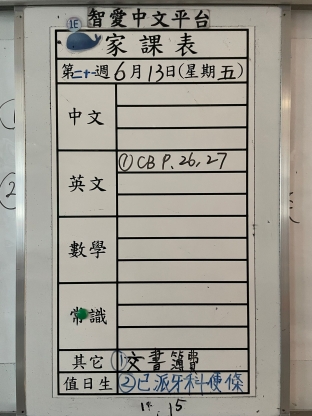 智愛中文平台
1E 家課表
第二十週6月13日(星期五)
中文
英文 ①CB P.26,27
數學
常識
其它 ①交書簿費
值日生 ②已派牙科便條
15